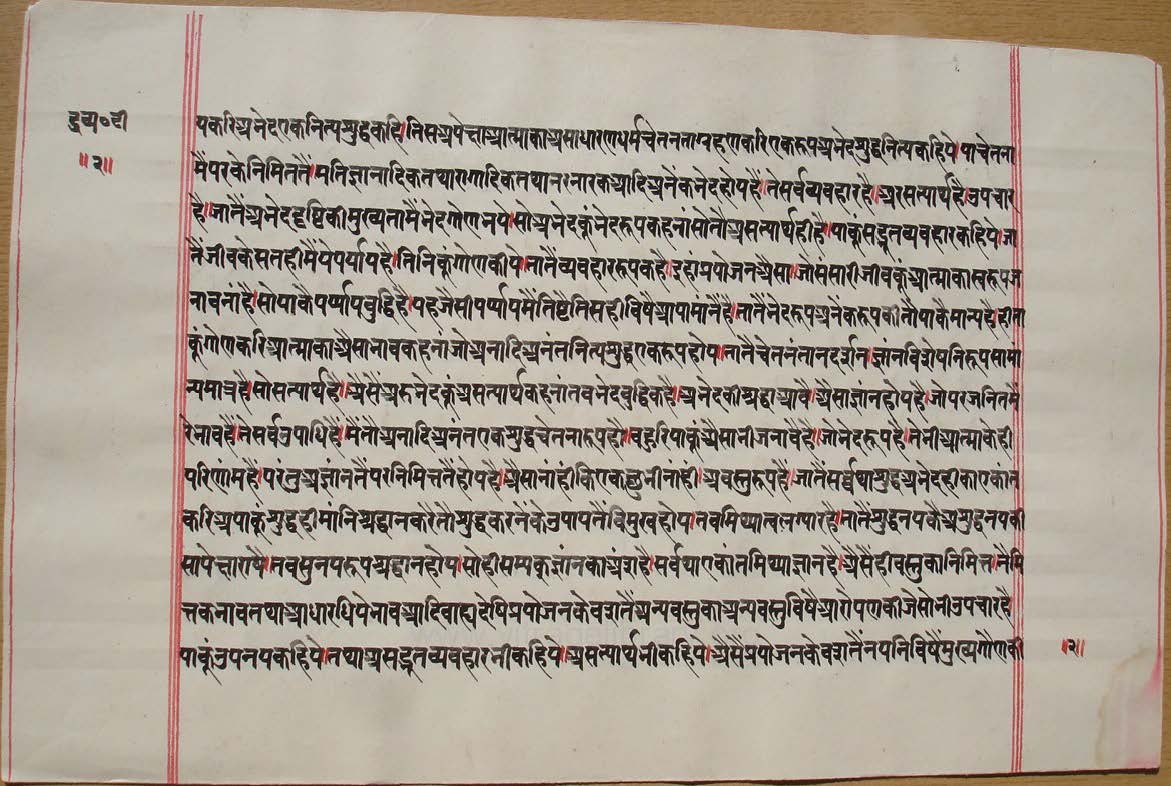 द्रव्य०टी
॥२॥
यकरिअभेदएकनित्यशुद्धकहि।तिसअपेक्षाआत्माकाअसाधारणधर्मचेतनताग्रहणकरिएकरूपअभेदशुद्धनित्यकहिये।याचेतना
मैंपरकेनिमिततैं।मतिज्ञानादिकतथारागादिकतथानरनारकआदिअनेकभेदहोयहैं।तेसर्वव्यवहारहै।असत्यार्थहै।उपचार
है।जातैंअभेददृष्टिकीमुख्यतामैंभेदगोणभये।सोअभेदकूंभेदरूपकहनांसोतौअसत्यार्थहीहै।याकूंसद्भूतव्यवहारकहिये।जा
तैंजीवकेसतहीमैंयेपर्यायहै।तिनिकूंगोणकीये।तातैंव्यवहाररूपकहै।इहांप्रयोजनअैसा।जोसंसारीजीवकूंआत्माकास्वरूपज
नावनांहै।सोयाकैपर्य्यायबुद्धिहै।यहजैसीपर्य्यायमैंतिष्टैतिसहीविषैआपामांनैहै।तातैंभेदरूपअनेंकरूपकीतौयाकैमान्यहै।हीता
कूंगोणकरिआत्माकाअैसाभावकहनां।जोअनादिअनंतनित्यशुद्धएकरूपहोय।तातैंचेतनंतानदर्शन।ज्ञांनविशेषनिरूपसामां
न्यमात्रहै।सोसत्यार्थहै।अैसेंअरुभेदकूंअसत्यार्थकहनांतबभेदबुद्धिकहै।अभेदकीश्रद्धाआवै।अैसाज्ञांनहोयहै।जोपरजनितमें
रेभावहैं।तेसर्वउपाधिहै।मैंतौअनादिअनंतएकशुद्धचेतनारूपहौ।बहुरियाकूंअैसाभीजनावैहै।जोभेदरूपहै।तेभीआत्माकेही
परिणांमहैं।परंतुअज्ञांनतैंपरनिमित्ततैंहोयहै।अैसानांहीकिएकछुभीनांही।अवस्तुरूपहै।जातैंसर्वथाशुद्धअभेदहीकाएकांत
करिअयाकूंशुद्धहीमांनिश्रद्धानकरैतौशुद्धकरनेंकेउपायतैंविमुखहोय।तबमिथ्यात्वलग्यारहै।तातैंशुद्धनयकैअशुद्धनयकी
सापेक्षाराषै।तबसुनयरूपश्रद्धानहोय।सोहीसम्यकज्ञांनकाअंशहै।सर्वथाएकांतमिथ्याज्ञानहै।अैसैहीवस्तुकानिमित्तनैमि
त्तकभावतथाआधारधियेभावआदिबाह्यदेषिप्रयोजनकेवशतैंअन्यवस्तुकाअन्यवस्तुविषैआरोपणकीजेसोभीउपचारहै
याकूंउपनयकहिये।तथाअसद्भूतव्यवहारभीकहिये।असत्यार्थभीकहिये।अैसेंप्रयोजनकेवशतैंनयनिविषैंमुख्यगौणकी
॥२॥